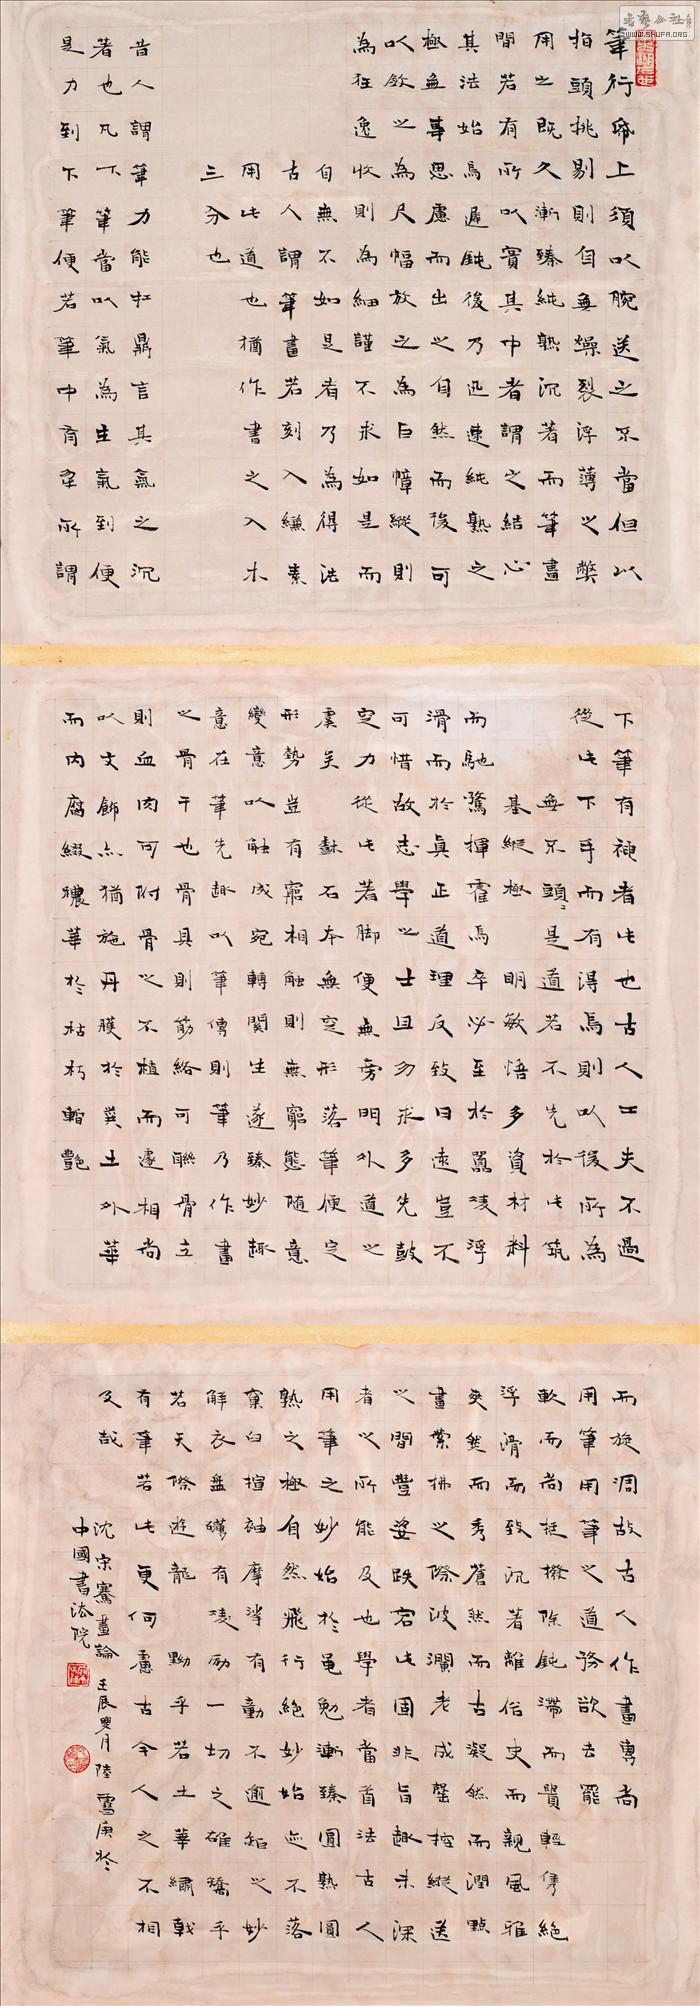 筆行帋上須以腕送之不當但以
指頭挑剔則自無燥裂浮薄之弊
用之既久漸臻純熟沉著而筆畫
間若有所以實其中者謂之結心
其法始焉遲鈍後乃迅速純熟之
極無事思慮而出之自然而後可
以斂之為尺幅放之為巨幛縱則
為狂逸收則為細謹不求如是而
自無不如是者乃為得法
古人謂筆畫若刻入縑素
用此道也猶作書之入木
三分也
昔人謂筆力能扛鼎言其氣之沉
著也凡下筆當以氣為主氣到便
是力到下筆便若筆中有所謂
下筆有神者此也古人工夫不過
從此下手而有得焉則以後所為
無不頭〻是道若不先於此筑
基縱極明敏悟多資材料
而馳騖揮霍焉卒必至於囂凌浮
滑而於真正道理反致日遠豈不
可惜故志學之士且勿求多先鼓
定力從此著脚便無旁門外道之
虞矣 穌石本無定形落筆便定
形勢豈有窮相触則無窮態隨意
變意以触成宛轉関生遂臻妙趣
意在筆先趣以筆傳則筆乃作畫
之骨干也骨具則筋絡可聯骨立
則血肉可附骨之不植而遽相尚
以文飾亦猶施丹雘於糞土外華
而內腐綴穠華於枯朽暫艷
而旋凋故古人作畫專尚
用筆用筆之道務欲去罷
軟而尚挺撥除鈍滯而貴輕雋絕
浮滑而致沉著離俗史而親風雅
爽然而秀蒼然而古凝然而潤點
畫縈拂之際波瀾老成罄控縱送
之間豐姿跌宕此固非旨趣未深
者之所能及也學者當首法古人
用筆之妙始於黽勉漸臻圓熟圓
熟之極自然飛行絕妙始迹不落
窠臼揎袖摩挲有動不逾矩之妙
解衣盤礴有凌勵一切之雄矯乎
若天際遊龍黝乎若土華繡戟
有筆若此更何慮古今人之不相
及哉
沈宗騫畫論 壬辰夏月 陸雪庚於
中國書法院
WWW.SHUFA.ORG